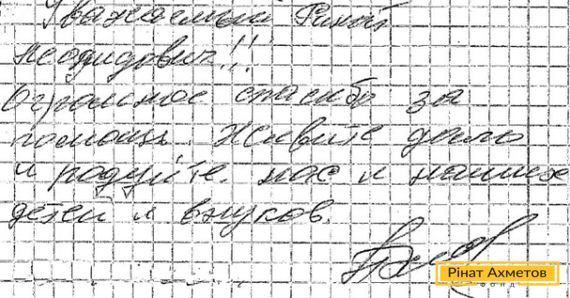 Уважаемый Ринат
Леонидович!!!
Огромное спасибо за
помощь. Живите долго
и радуйте нас и наших
детей и внуков.
Рінат Ахметов
ФОНД